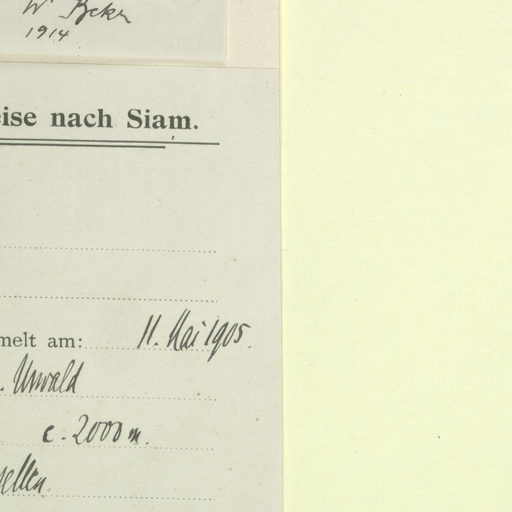 W. Becker
1914
eise nach Siam.
melt am: 11. Mai 1905.
. Urwald
c. 2000 m.
ellen.